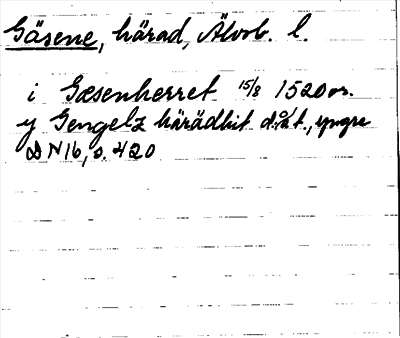 Gäsene, härad, Älvsb. l.
i Gæsenherret 15/8 1520 or.
y Gengelz härädhit d:o å t., yngre
DN 16, s. 420